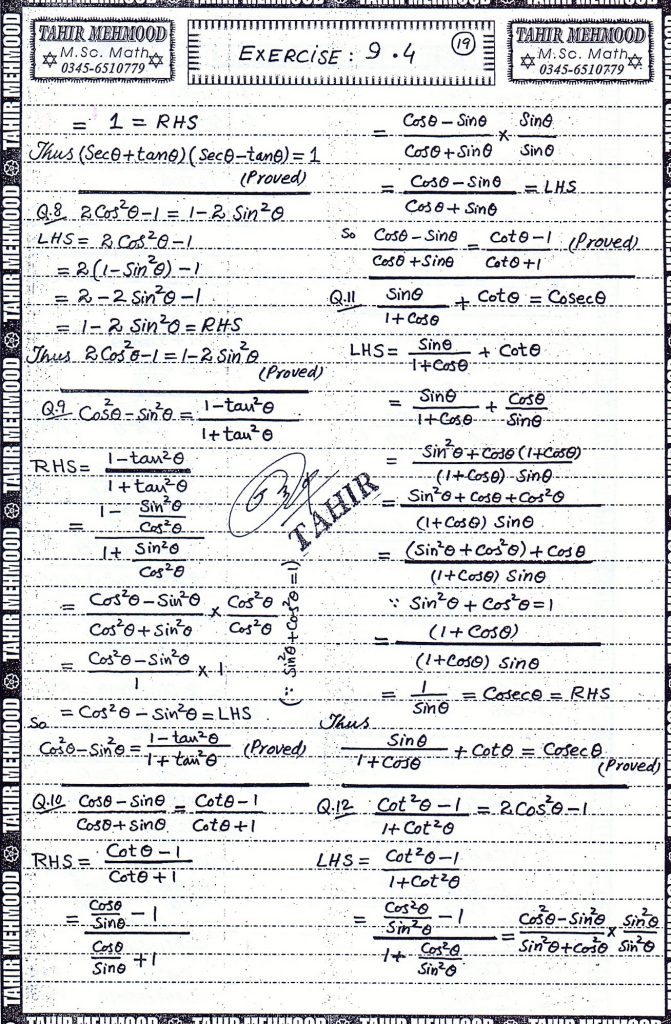 TAHIR MEHMOOD
M.Sc. Math
0345-6510779
EXERCISE: 9.4
19
TAHIR MEHMOOD
M.Sc. Math
0345-6510779
= 1 = RHS
Thus (Secθ+tanθ)(Secθ-tanθ)=1
(Proved)
Q.8 2Cos²θ-1 = 1-2 Sin²θ
LHS = 2 Cos²θ-1
= 2(1-Sin²θ) -1
= 2-2 Sin²θ-1
= 1-2 Sin²θ = RHS
Thus 2Cos²θ-1 = 1-2Sin²θ
(Proved)
Q.9 Cos²θ-Sin²θ = (1-tan²θ)/(1+tan²θ)
RHS = (1-tan²θ)/(1+tan²θ)
= (1- Sin²θ/Cos²θ)/(1+ Sin²θ/Cos²θ)
= (Cos²θ-Sin²θ)/(Cos²θ+Sin²θ) × Cos²θ/Cos²θ
= (Cos²θ-Sin²θ)/1 × 1
(∵ Sin²θ+Cos²θ=1)
= Cos²θ - Sin²θ = LHS
So
Cos²θ-Sin²θ = (1-tan²θ)/(1+tan²θ) (Proved)
Q.10 (Cosθ-Sinθ)/(Cosθ+Sinθ) = (Cotθ-1)/(Cotθ+1)
RHS = (Cotθ-1)/(Cotθ+1)
= (Cosθ/Sinθ - 1)/(Cosθ/Sinθ +1)
= (Cosθ-Sinθ)/(Cosθ+Sinθ) × Sinθ/Sinθ
= (Cosθ-Sinθ)/(Cosθ+Sinθ) = LHS
So (Cosθ-Sinθ)/(Cosθ+Sinθ) = (Cotθ-1)/(Cotθ+1) (Proved)
Q.11 Sinθ/(1+Cosθ) + Cotθ = Cosecθ
LHS = Sinθ/(1+Cosθ) + Cotθ
= Sinθ/(1+Cosθ) + Cosθ/Sinθ
= (Sin²θ+Cosθ(1+Cosθ))/((1+Cosθ)·Sinθ)
= (Sin²θ+Cosθ+Cos²θ)/((1+Cosθ) Sinθ)
= ((Sin²θ+Cos²θ)+Cosθ)/((1+Cosθ) Sinθ)
∵ Sin²θ+Cos²θ=1
= (1+Cosθ)/((1+Cosθ) Sinθ)
= 1/Sinθ = Cosecθ = RHS
Thus
Sinθ/(1+Cosθ) + Cotθ = Cosecθ
(Proved)
Q.12 (Cot²θ-1)/(1+Cot²θ) = 2Cos²θ-1
LHS = (Cot²θ-1)/(1+Cot²θ)
= (Cos²θ/Sin²θ - 1)/(1+ Cos²θ/Sin²θ) = (Cos²θ-Sin²θ)/(Sin²θ+Cos²θ) × Sin²θ/Sin²θ
TAHIR
TAHIR MEHMOOD
TAHIR MEHMOOD
TAHIR MEHMOOD
TAHIR MEHMOOD
TAHIR MEHMOOD
TAHIR MEHMOOD